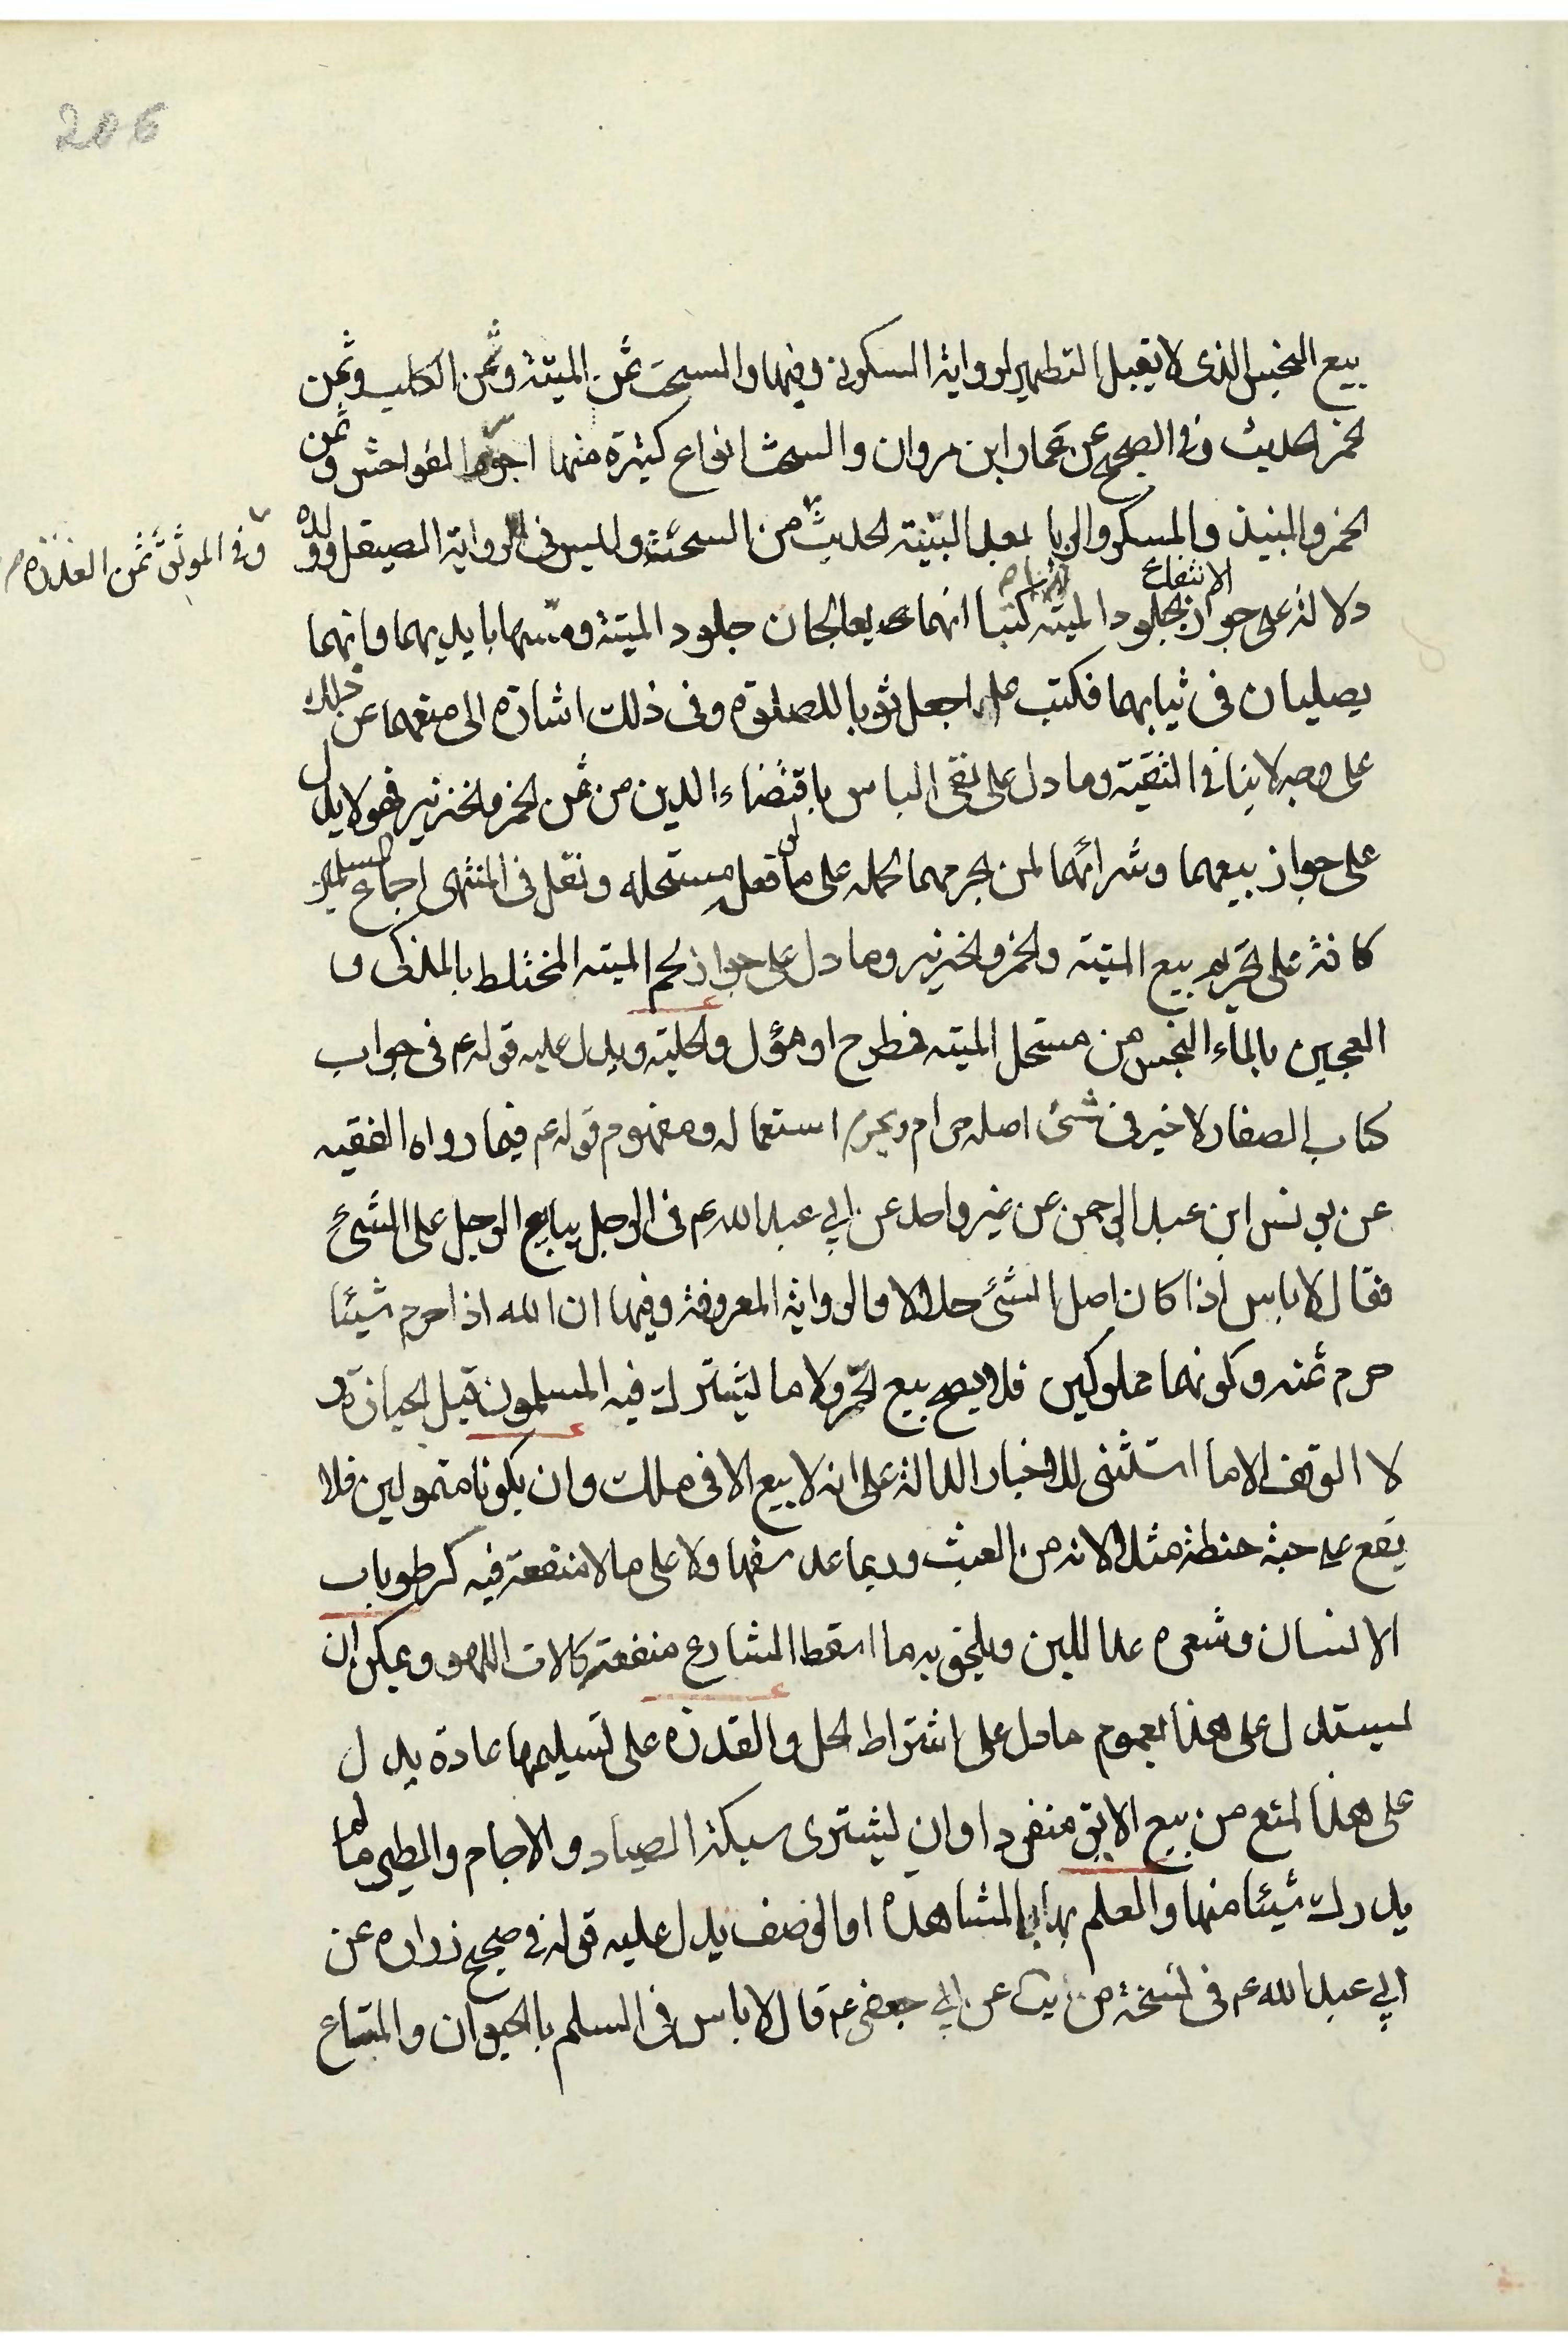 206
بيع النجس الذى لا يقبل التطهير لرواية السكونى وفيها والسحت ثمن الميتة وثمن الكلب وثمن
الخمر الحديث وفى الصحيح عن عمار ابن مروان والسحت انواع كثيرة منها اجور الفواحش وثمن
الخمر والنبيذ والمسكر والربا بعد البينة الحديث من السحت وليس فى رواية الصيقل وولده
وفى الموثق ثمن العذرة
دلالة على جواز الانتفاع بجلود الميتة كتبا انهما يعالجان جلود الميتة ومسها بايديهما وانهما
يصليان فى ثيابهما فكتب عليه اجعل ثوبا للصلوة وفى ذلك اشارة الى منعهما عن ذلك
على وجه لا ينافى التقية وما دل على نفى الباس باقتضاء الدين من ثمن الخمر والخنزير فهو لا يدل
على جواز بيعهما وشرائهما لمن يحرمهما لحمله على ما لو فعل مستحله ونقل فى المنتهى اجماع المسلمين
كافة على تحريم بيع الميتة والخمر والخنزير وما دل على جواز لحم الميتة المختلط بالمذكى و
العجين بالماء النجس من مستحل الميتة فمطرح او مؤل والحلية ويدل عليه قوله عم فى جواب
كتاب الصفار لا خير فى شئ اصله حرام ويحرم استعماله ومفهوم قوله عم فيما رواه الفقيه
عن يونس ابن عبد الرحمن عن غير واحد عن ابى عبد الله عم فى الرجل يبايع الرجل على الشئ
فقال لا باس اذا كان اصل الشئ حلالا والرواية المعروفة وفيها ان الله اذا حرم شيئا
حرم ثمنه وكونهما مملوكين فلا يصح بيع الحر ولا ما يشترك فيه المسلمون قبل الحيازة و
لا الوقف الا ما استثنى للاخبار الدالة على انه لا بيع الا فى ملك وان يكونا متمولين فلا
يقع على حبة حنطة مثلا لانه من العبث وربما عد سفها ولا على ما لا منفعة فيه كرطوبات
الانسان وشعره عدا اللبن ويلحق به ما اسقط الشارع منفعته كالات اللهو ويمكن ان
يستدل على هذا بعموم ما دل على اشتراط الحل والقدرة على تسليمها عادة يدل
على هذا المنع من بيع الابق منفردا وان يشترى سبكة الصياد والاجام والطير ما لم
يدرك شيئا منها والعلم بها بالمشاهدة او الوصف يدل عليه قوله فى صحيح زرارة عن
ابى عبد الله عم فى نسخة من يب عن ابى جعفر عم قال لا باس فى السلم بالحيوان والمتاع